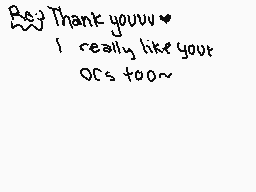 Re:3 Thank youuu ♥
I really like your
ocs too~